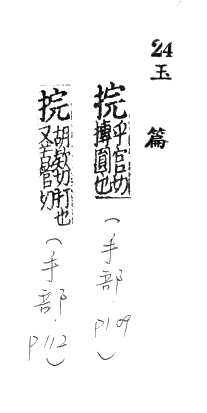 24 玉 篇
捖
乎官切
摶圓也
(手部. P109)
捖
胡切也
又古管切
(手部. P112)